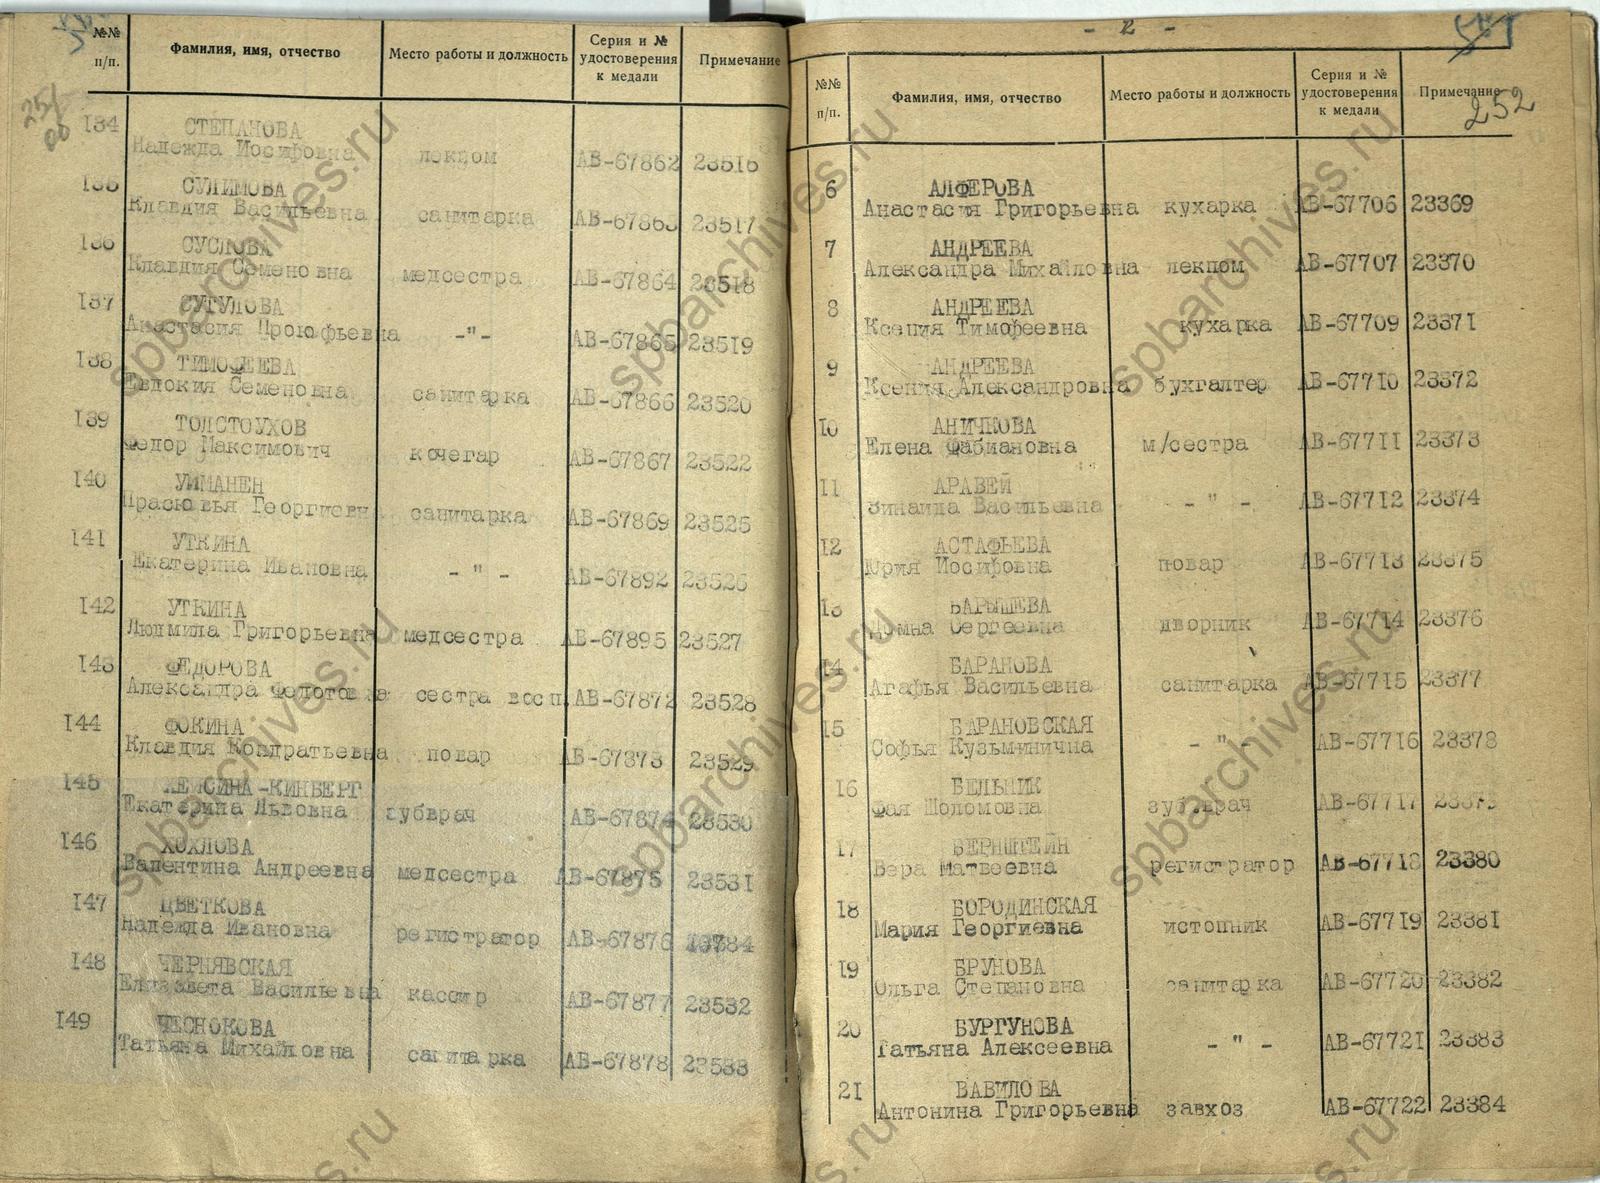 №№ п/п. Фамилия, имя, отчество Место работы и должность Серия и № удостоверения к медали Примечание
134 СТЕПАНОВА
Надежда Иосифовна лекпом АВ-67862 23516
135 СУЛИМОВА
Клавдия Васильевна санитарка АВ-67863 23517
136 СУСЛОВА
Клавдия Семеновна медсестра АВ-67864 23518
137 СУТУЛОВА
Анастасия Прокофьевна -"- АВ-67865 23519
138 ТИМОФЕЕВА
Евдокия Семеновна санитарка АВ-67866 23520
139 ТОЛСТОУХОВ
Федор Максимович кочегар АВ-67867 23522
140 УЙМАНЕН
Прасковья Георгиевн санитарка АВ-67869 23525
141 УТКИНА
Екатерина Ивановна - " - АВ-67892 23526
142 УТКИНА
Людмила Григорьевна медсестра АВ-67895 23527
143 ФЕДОРОВА
Александра Федотовна сестра восп. АВ-67872 23528
144 ФОКИНА
Клавдия Кондратьевна повар АВ-67873 23529
145 ХЕЙСИНА-КИНБЕРГ
Екатерина Львовна зубврач АВ-67874 23530
146 ХОХЛОВА
Валентина Андреевна медсестра АВ-67875 23531
147 ЦВЕТКОВА
Надежда Ивановна регистратор АВ-67876
148 ЧЕРНЯВСКАЯ
Елизавета Васильевна кассир АВ-67877 23532
149 ЧЕСНОКОВА
Татьяна Михайловна санитарка АВ-67878 23533
- 2 -
252
№№ п/п. Фамилия, имя, отчество Место работы и должность Серия и № удостоверения к медали Примечание
6 АЛФЕРОВА
Анастасия Григорьевна кухарка АВ-67706 23369
7 АНДРЕЕВА
Александра Михайловна лекпом АВ-67707 23370
8 АНДРЕЕВА
Ксения Тимофеевна кухарка АВ-67709 23371
9 АНДРЕЕВА
Ксения Александровна бухгалтер АВ-67710 23372
10 АНИЧКОВА
Елена Фабиановна м/сестра АВ-67711 23373
11 АРАВЕЙ
Зинаида Васильевна - " - АВ-67712 23374
12 АСТАФЬЕВА
Юрия Иосифовна повар АВ-67713 23375
13 БАРЫШЕВА
Домна Сергеевна дворник АВ-67714 23376
14 БАРАНОВА
Агафья Васильевна санитарка АВ-67715 23377
15 БАРАНОВСКАЯ
Софья Кузьминична - " - АВ-67716 23378
16 БЕЛЬНИК
Фая Шоломовна зуб.врач АВ-67717 23379
17 БЕРНШТЕЙН
Вера Матвеевна регистратор АВ-67718 23380
18 БОРОДИНСКАЯ
Мария Георгиевна истопник АВ-67719 23381
19 БРУНОВА
Ольга Степановна санитарка АВ-67720 23382
20 БУРГУНОВА
Татьяна Алексеевна - " - АВ-67721 23383
21 ВАВИЛОВА
Антонина Григорьевна завхоз АВ-67722 23384
spbarchives.ru